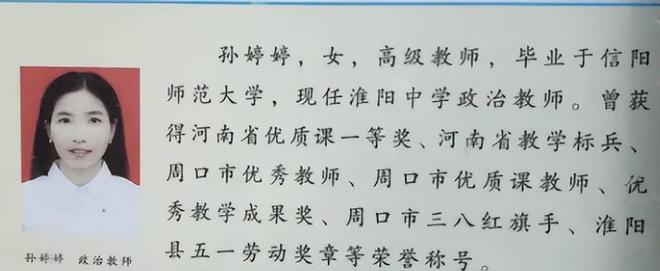 孙婷婷，女，高级教师，毕业于信阳
师范大学，现任淮阳中学政治教师。曾获
得河南省优质课一等奖、河南省教学标兵、
周口市优秀教师、周口市优质课教师、优
秀教学成果奖、周口市三八红旗手、淮阳
县五一劳动奖章等荣誉称号。
孙婷婷 政治教师